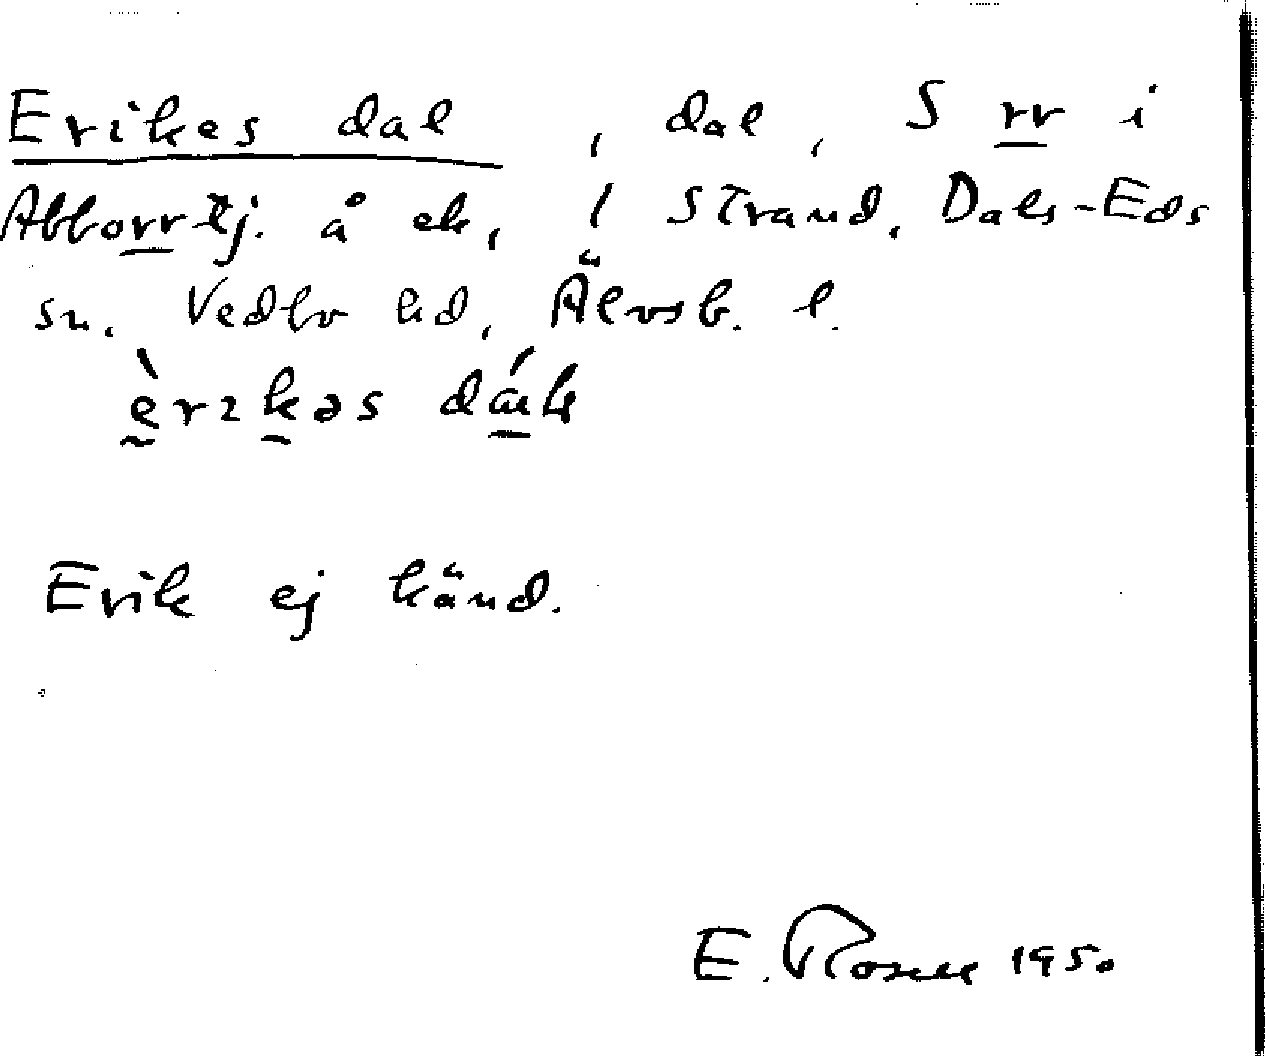 Erikes dal, dal, S rr i
Abborrtj. å ek, 1 Strand, Dals-Eds
sn. Vedbo hd, Älvsb. l.
Erik ej känd.
E. Rosell 1950